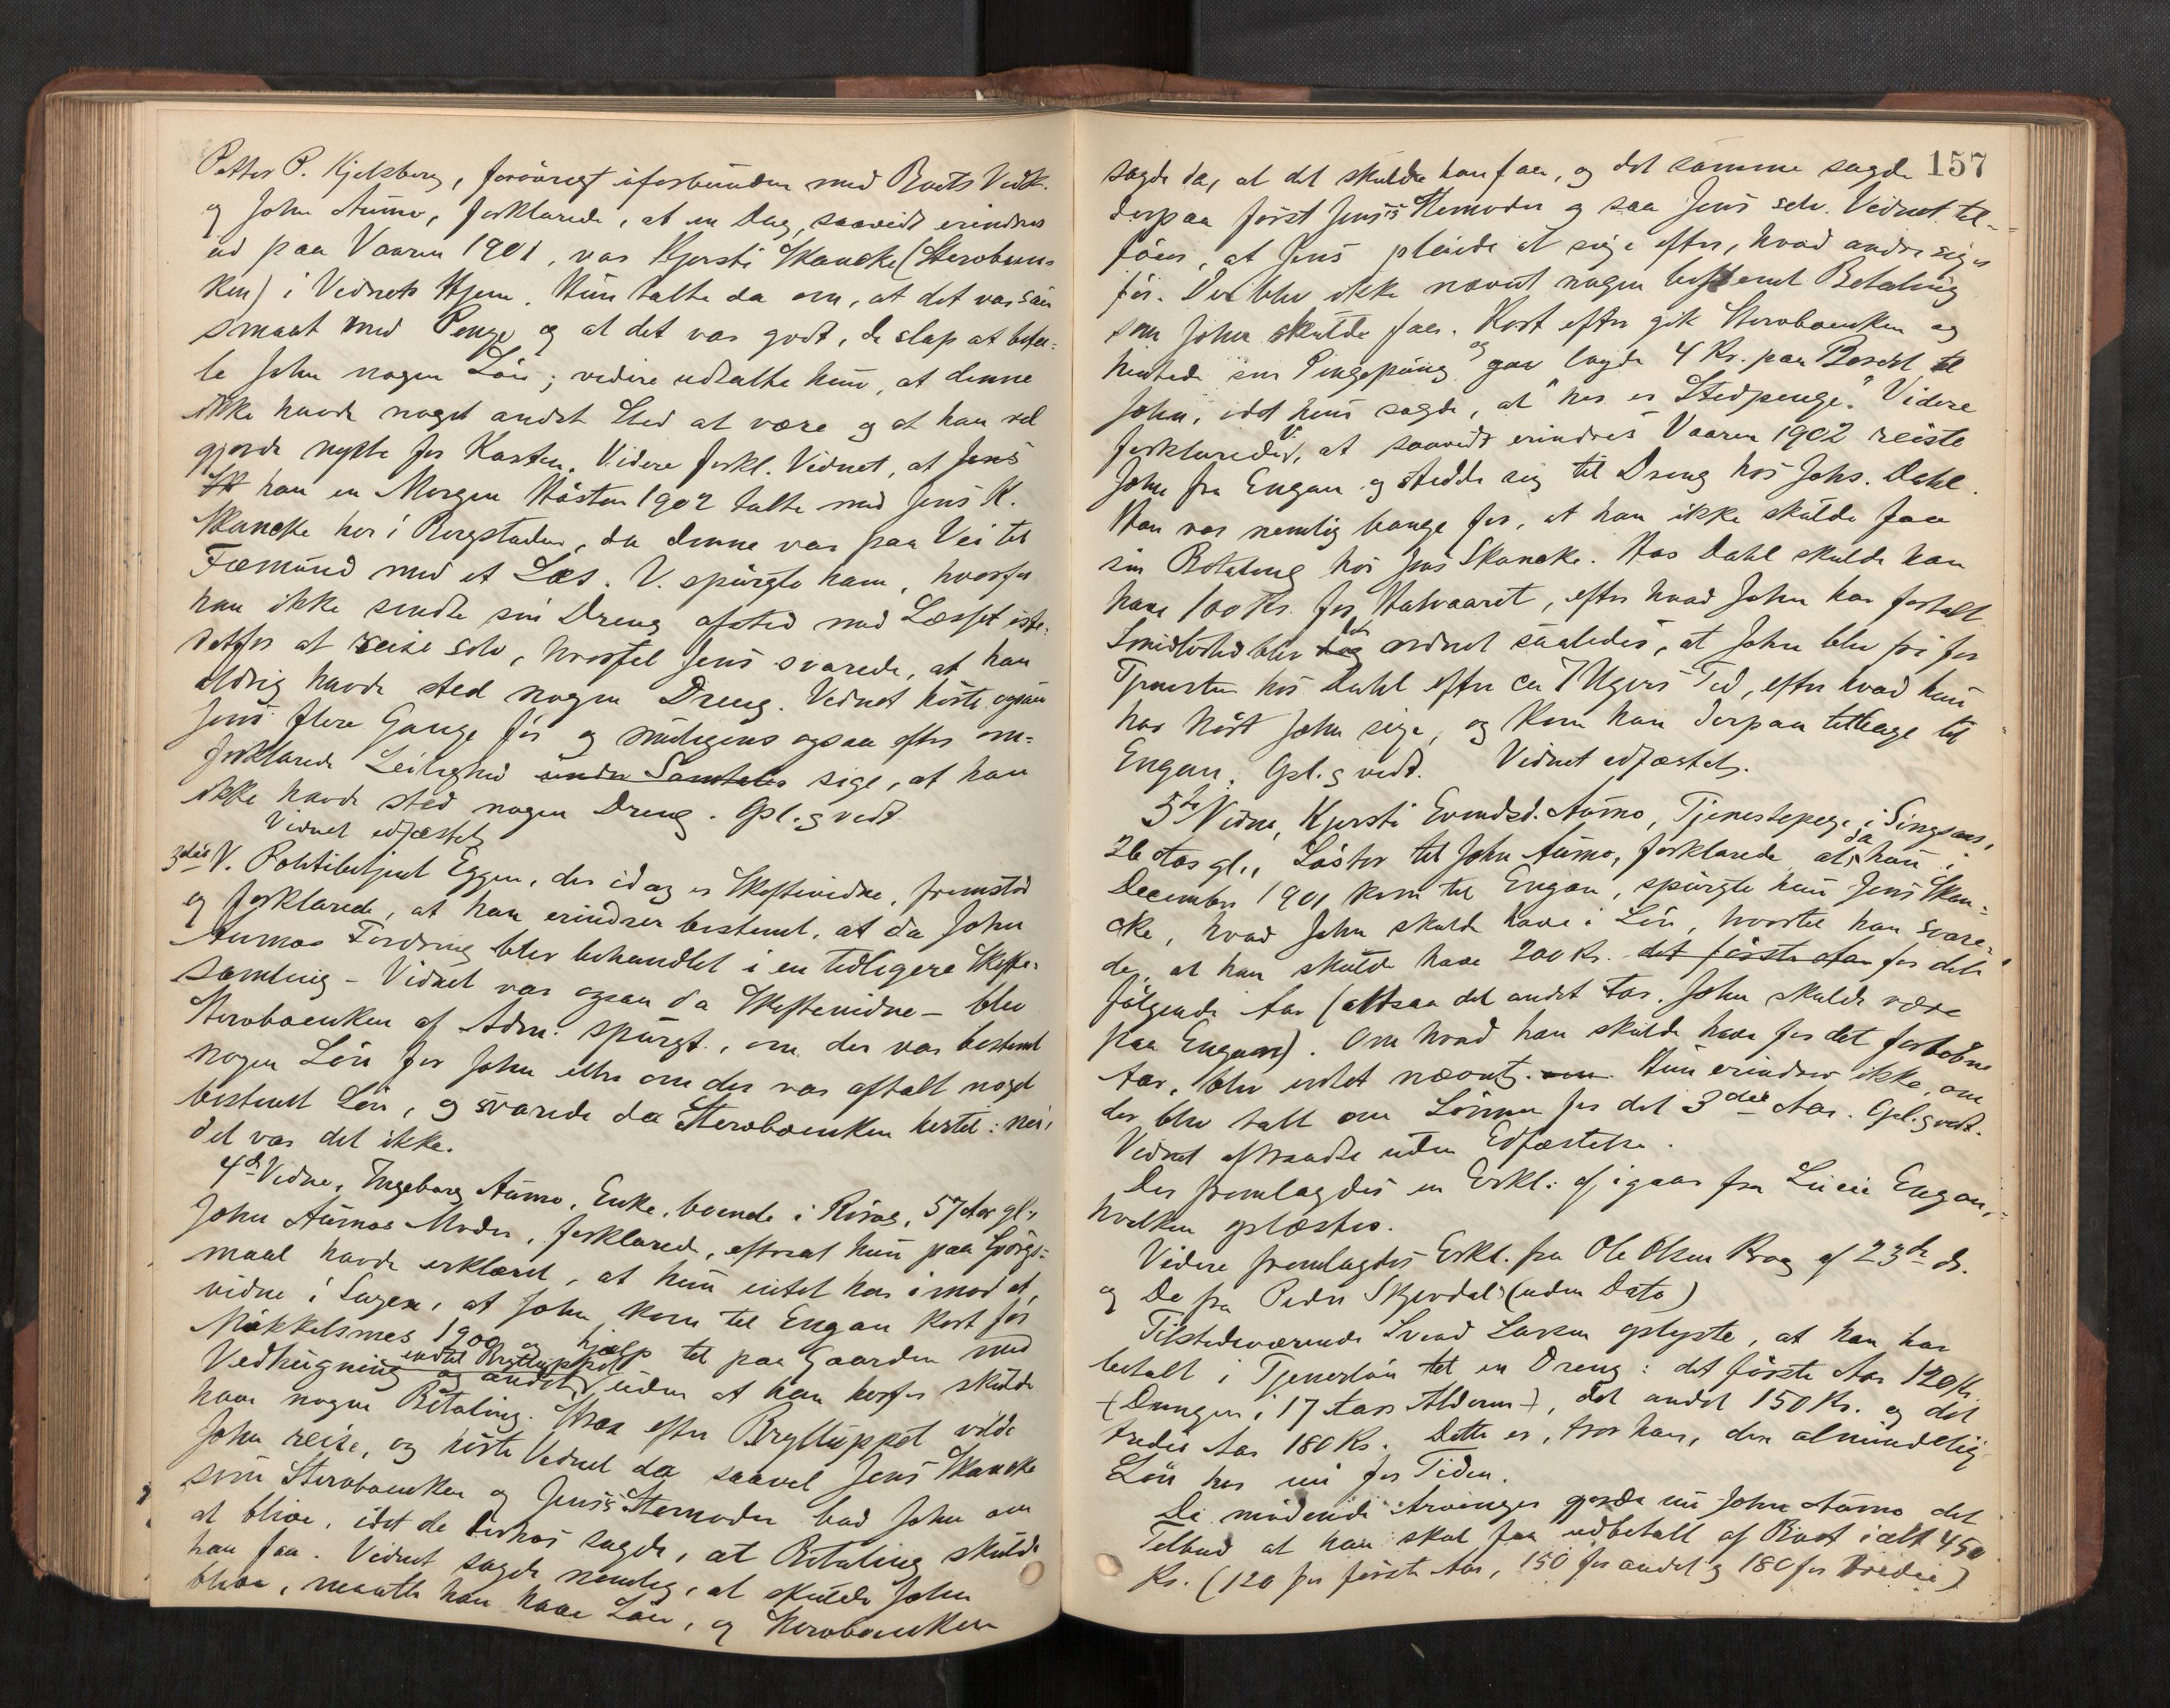 Petter P. Kjelsberg, forøvrigt uforbunden med Boets Vedk.
og John Aumo, forklarede, at en Dag, saavidt erindres
ud paa Vaaren 1901, var Kjersti Skancke (Sterboenken)
i Vednets Hjem. Hun talte da om, at det var saa
smaat med Penge og at det var godt, de slap at beta-
le John nogen Løn; videre udtalte hun, at denne
ikke havde noget andet Sted at være og at han vel
gjorde nytte for Kosten. Videre forkl. Vidnet, at Jens
han en Morgen Høsten 1902 talte med Jens K.
Skancke her i Bergstaden, da denne var paa Vei til
Fæmund med et Læs. V. spurgte ham, hvorfor
han ikke sendte sin Dreng afsted med Læsset iste-
detfor at reise selv, hvortil Jens svarede, at han
aldrig havde sted nogen Dreng. Vidnet hørte ogsaa
Jens flere Gange før og muligens ogsaa efter om-
forklarede Leilighed under Samtale sige, at han
ikke havde sted nogen Dreng. Opl. g vedt
Vidnet edfæstet
3die V. Politibetjent Eggen, der idag er Skiftevidne, fremstod
og forklarede, at han erindrer bestemt, at da John
Aumos Fordring blev behandlet i en tidligere Skifte-
samling - Vidnet var ogsaa da Skiftevidne - blev
Sterboenken af Adm. spurgt, om der var bestemt
nogen Løn for John eller om der var aftalt noget
bestemt Løn, og svarede da Sterboenken hertil: nei,
det var det ikke.
4de Vidne, Ingeborg Aumo, Enke, boende i Røros, 57 Aar gl.,
John Aumos Moder, forklarede, efterat hun paa Spørgs-
maal havde erklæret, at hun intet har imod at
vidne i Sagen, at John kom til Engan kort før
Mikkelsmes 1900 og hjalp til paa Gaarden med
indtil Brylluppet
Vedhugning og andet, uden at han herfor skulde
have nogen Betaling. Strax efter Brylluppet vilde
John reise, og hørte Vidnet da saavel Jens Skancke
som Sterboenken og Jens's Stermoder bad John om
at blive, idet de derhos sagde, at Betaling skulde
han faa. Vidnet sagde nemlig, at skulde John
blive, maatte han have Løn, og Sterboenken
157
sagde da, at det skulde han faa, og det samme sagde
derpaa først Jens's Stermoder og saa Jens selv. Vidnet til-
føier, at Jens pleiede at sige efter, hvad andre siger
før. Der blev ikke nævnt nogen bestemt Betaling
som John skulde faa. Kort efter gik Sterboenken og
hentede sin Pengepung og gav lagde 4 Kr. paa Bordet til
John, idet hun sagde, at "her er Stedpenge". Videre
forklarede V., at saavidt erindres Vaaren 1902 reiste
John fra Engan og stedde sig til Dreng hos Johs. Dahl.
Han var nemlig bange for, at han ikke skulde faa
sin Betaling hos Jens Skancke. Hos Dahl skulde han
have 100 Kr. for Halvaaret, efter hvad John har fortalt.
Imidlertid blev det ordnet saaledes, at John blev fri for
Tjenesten hos Dahl efter ca 7 Ugers Tid, efter hvad hun
har hørt John sige, og kom han derpaa tilbage til
Engan. Opl. g vedt. Vidnet edfæstet.
5te Vidne, Kjersti Evendsd. Aumo, Tjenestepige i Singsaas,
26 Aar gl., Søster til John Aumo, forklarede, at da hun i
December 1901 kom til Engan, spurgte hun Jens Skan-
cke, hvad John skulde have i Løn, hvortil han svare-
de, at han skulde have 200 Kr. det første Aar for det
følgende Aar (altsaa det andet Aar John skulde være
paa Engan). Om hvad han skulde have for det forløbne
Aar, blev intet nævnt. Hun erindrer ikke, om
der blev talt om Lønnen for det 3die Aar. Opl. g vedt.
Vidnet aftraadte uden Edfæstelse.
Der fremlagdes en Erkl. af igaar fra Lucie Engan,
hvilken oplæstes.
Videre fremlagdes Erkl. fra Ole Olsen Krog af 23de ds.
og Do fra Peder Skjevdal (uden Dato)
Tilstedeværende Svend Larsen oplyste, at han har
betalt i Tjenerløn til en Dreng: det første Aar 120 Kr.
(Drengen i 17 Aars Alderen), det andet 150 Kr. og det
tredie Aar 180 Kr. Dette er, tror han, den almindelig
Løn her nu for Tiden.
De mødende Arvinger gjorde nu John Aumo det
Tilbud at han skal faa udbetalt af Boet ialt 450
Kr. (120 for første Aar, 150 for andet og 180 for tredie)